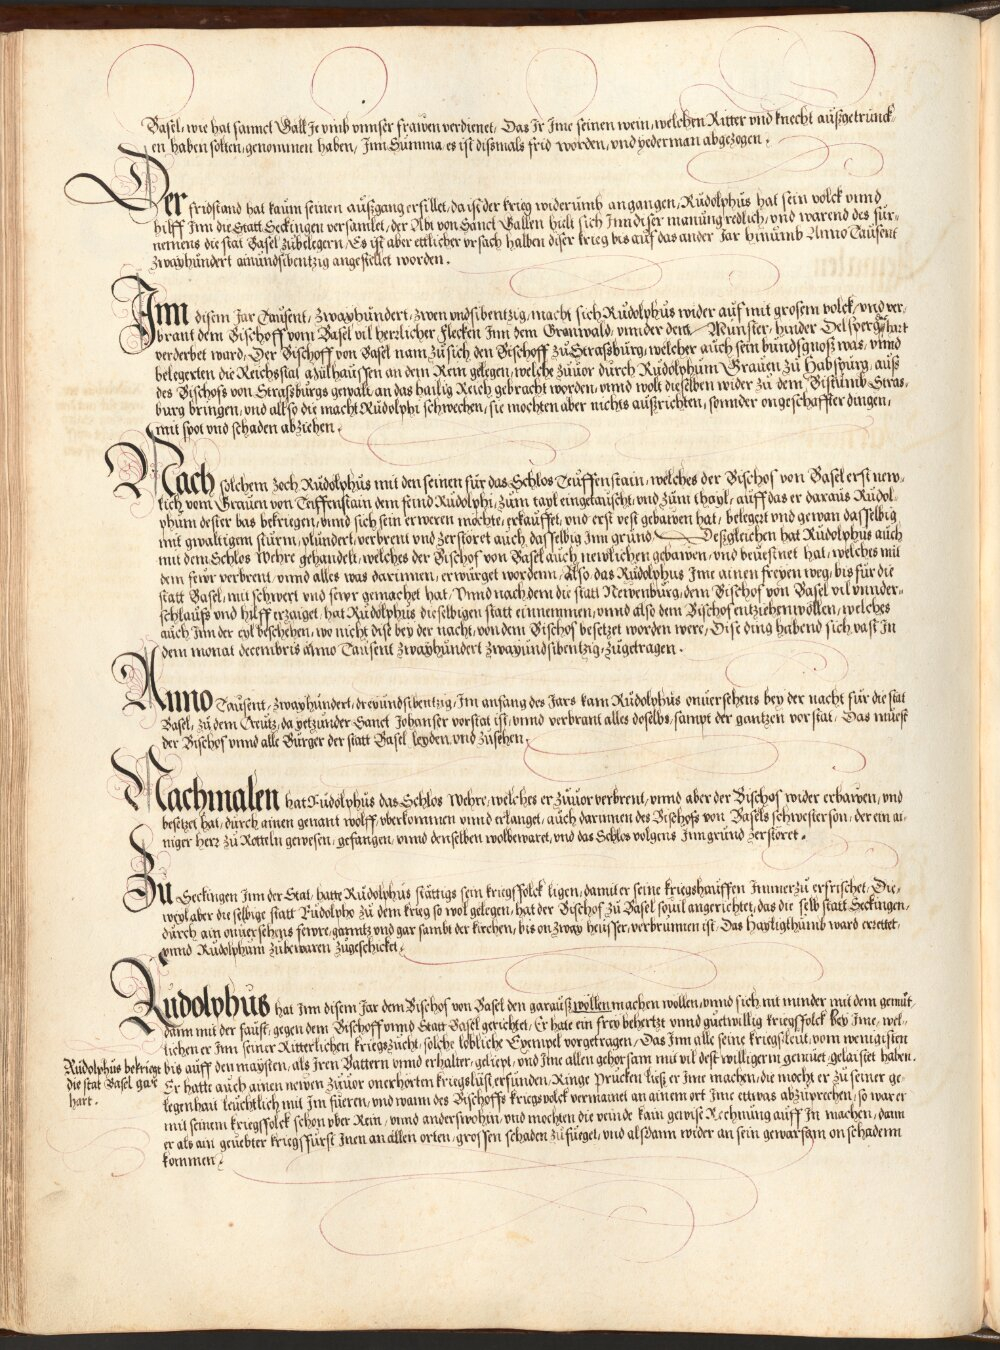 Basel, wie hat sannct Gall Je vmb vnnser frauen verdienet, Das Ir Ime seinen wein, welchen Ritter vnd knecht außgetrunck-
en haben solten, genommen haben, Jnn Summa es ist dißmals frid worden, vnd yederman abgezogen.
Der fridstand hat kaum seinen außgang erfillet, da ist der krieg widerumb angangen, Rudolphus hat sein volck vnnd
hilff Jnn die Statt Seckingen versamlet, der Abt von Sanct Gallen hielt sich Jnn diser manung redlich, vnd warend des für-
nemens die stat Basel zubelegern, Es ist aber ettlicher vrsach halben diser krieg bis auf das ander Jar hinumb Anno Tausent
zwayhundert ainundsibentzig angestellet worden.
Jnn disem Jar Tausent, zwayhundert, zwen vndsibentzig, macht sich Rudolphus wider auf mit grosem volck, vnd ver-
brant dem Bischoff vom Basel vil herrlicher flecken Jnn dem Granwald, vnnder dem Munster, hinder Delsperg hart
verderbet ward, Der Bischoff von Basel nam zu sich den Bischoff zu Straßburg, welcher auch sein bundsgnoß was, vnnd
belegerten die Reichsstat Mülhaussen an dem Rein gelegen, welche zuuor durch Rudolphum Grauen zu Habspurg, auß
des Bischofs von Straßburgs gewalt an das hailig Reich gebracht worden, vnnd wolt dieselben wider zu dem Bistumb Stras-
burg bringen, vnd allso die macht Rudolphi schwechen, sie mochten aber nichts außrichten, sonnder ongeschaffter dingen,
mit spot vnd schaden abziehen.
Nach solchem zoch Rudolphus mit den seinen für das Schlos Teuffenstain, welches der Bischof von Basel erst new-
lich vom Grauen von Teffenstain dem feind Rudolphi, zum tayl eingetauscht, vnd zum thayl, auff das er daraus Rudol-
phum dester bas bekriegen, vnnd sich sein erweren möchte, erkauffet, vnd erst vest gebawen hat, belegert vnd gewan dasselbig
mit gwaltigem sturm, plundert, verbrent vnd zerstoret auch dasselbig Jnn grund, Deßgleichen hat Rudolphus auch
mit dem Schlos Wehre gehandelt, welches der Bischof von Basel auch newlichen gebawen, vnd beuestnet hat, welches mit
dem fewr verbrent, vnnd alles was darinnen, erwürget wordenn, Also das Rudolphus Ime ainen freyen weg, bis für die
statt Basel, mit schwert vnd fewr gemachet hat, Vnnd nach dem die statt Newenburg, dem Bischof von Basel vil vnnder-
schlaufs vnd hilff erzaiget, hat Rudolphus dieselbigen statt einnemmen, vnnd also dem Bischof entziehen wöllen, welches
auch Jnn der eyl beschehen, wo nicht dise bey der nacht, von dem Bischof besetzet worden were, Dise ding habend sich vast In
dem monat decembris Anno Tausent zwayhundert zwayundsibentzig, zugetragen.
Anno Tausent, zwayhundert, dreyundsibentzig, Im anfang des Jars kam Rudolphus onuersehens bey der nacht für die stat
Basel, zu dem Creutz, da yetzunder Sanct Johanser vorstat ist, vnnd verbrant alles doselbs, sampt der gantzen vorstat, Das muest
der Bischof vnnd alle Burger der statt Basel leyden, vnd zusehen.
Nachmalen hat Rudolphus das Schlos Wehre, welches er zuuor verbrent, vnnd aber der Bischof wider erbawen, vnd
besetzet hat, durch ainen genant Wolff, vberkommen vnnd erlanget, auch darinnen des Bischofs von Basels schwester son, der ein ai-
niger herr zu Rotteln gewesen, gefangen, vnnd denselben wolbewaret, vnd das Schlos volgens Jnn grund zerstöret.
Zu Seckingen Jnn der Stat, hatte Rudolphus stättigs sein kriegsfolck ligen, damit er seine kriegshauffen Immerzu erfrischet, Die-
weyl aber die selbige statt Rudolpho zu dem krieg so wol gelegen, hat der Bischof zu Basel souil angerichtet, das die selb statt Seckingen,
durch ain onuersehens fewre, ganntz vnd gar sambt der kirchen, bis on zway heusser, verbrunnen ist, Das Hayligthumb ward erzettet,
vnnd Rudolphum zubewaren zugeschicket.
Rudolphus hat Jnn disem Jar dem Bischof von Basel den garauß wollen machen wollen, vnnd sich nit minder mit dem gemüt,
dann mit der faust, gegen dem Bischoff vnnd Statt Basel gerichtet, Er hate ein frey behertzt vnnd guetwillig kriegsfolck bey Ime, wel-
lichen er Jnn seiner Ritterlichen kriegszucht, solche lobliche Exempel vorgetragen, Das Jnn alle seine kriegsleut, vom wenigisten
Rudolphus bekrieget
die stat Basel gar
hart.
bis auff den maysten, als Jren Vattern vnnd erhalter, geliept, vnd Ime allen gehorsam mit vil dest willigerm gemuet, gelaistet haben.
Er hatte auch ainen newen zuuor onerhorten kriegslist erfunden, Ringe Prucken ließ er Ime machen, die mocht er zu seiner ge-
legenhait leuchtlich mit Im füeren, vnd wann des Bischoffs kriegsvolck vermainet an ainem ort Ime ettwas abzuprechen, so war er
mit seinem kriegsfolck schon vber Rein, vnnd anderswohin, vnd mochten die veinde kain gewise Rechnung auff In machen, dann
er als ain geuebter kriegsfürst Inen an allen orten, grossen schaden zufüeget, vnd alßdann wider an sein gewarsam on schadenn
kommen.